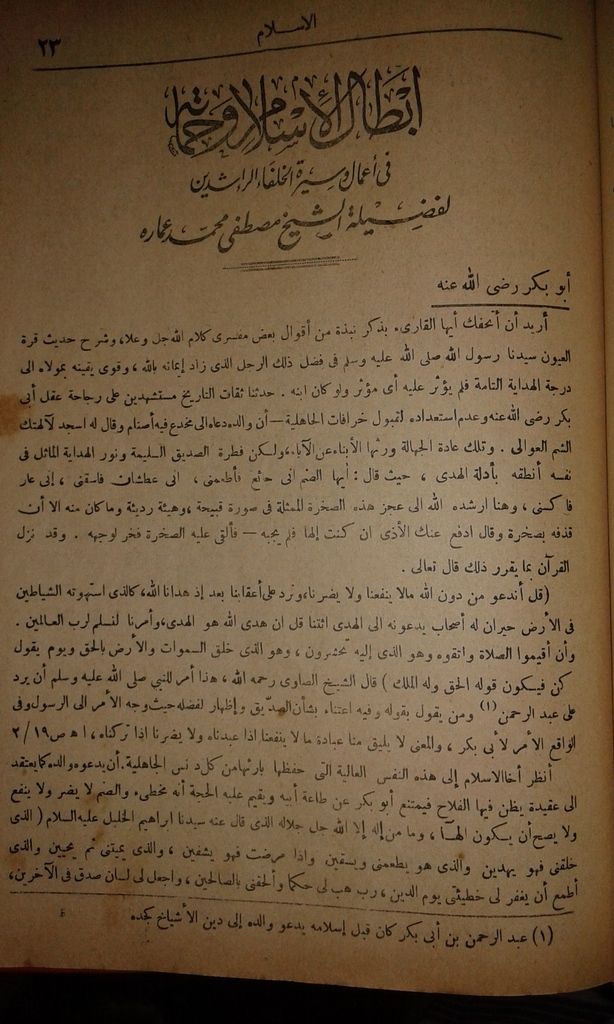 الاسلام
٢٣
أبطال الإسلام وحماته
فى أعمال وسيرة الخلفاء الراشدين
لفضيلة الشيخ مصطفى محمد عماره
أبو بكر رضى الله عنه
أريد أن أتحفك أيها القارىء بذكر نبذة من أقوال بعض مفسرى كلام الله جل وعلا، وشرح حديث قرة
العيون سيدنا رسول الله صلى الله عليه وسلم فى فضل ذلك الرجل الذى زاد إيمانه بالله ، وقوى يقينه بمولاه الى
درجة الهداية التامة فلم يؤثر عليه أى مؤثر ولو كان ابنه . حدثنا ثقات التاريخ مستشهدين على رجاحة عقل أبى
بكر رضى الله عنه وعدم استعداده لقبول خرافات الجاهلية — أن والده دعاه الى مخدع فيه أصنام وقال له اسجد لآلهتك
الشم العوالى . وتلك عادة الجهالة ورثها الأبناء عن الآباء، ولكن فطرة الصديق السليمة ونور الهداية الماثل فى
نفسه أنطقه بأدلة الهدى ، حيث قال : أيها الصنم انى جائع فأطعمنى ، انى عطشان فاسقنى ، إنى عار
فاكسنى ، وهنا ارشده الله الى عجز هذه الصخرة الممثلة فى صورة قبيحة ، وهيئة رديئة وما كان منه الا أن
قذفه بصخرة وقال ادفع عنك الأذى ان كنت إلها فلم يجبه — فألقى عليه الصخرة فخر لوجهه . وقد نزل
القرآن بما يقرر ذلك قال تعالى .
(قل أندعو من دون الله مالا ينفعنا ولا يضرنا، ونرد على أعقابنا بعد إذ هدانا الله، كالذى استهوته الشياطين
فى الأرض حيران له أصحاب يدعونه الى الهدى ائتنا قل ان هدى الله هو الهدى، وأمرنا لنسلم لرب العالمين .
وأن أقيموا الصلاة واتقوه وهو الذى إليه تحشرون ، وهو الذى خلق السموات والأرض بالحق ويوم يقول
كن فيكون قوله الحق وله الملك ) قال الشيخ الصاوى رحمه الله ، هذا أمر للنبى صلى الله عليه وسلم أن يرد
على عبد الرحمن (١) ومن يقول بقوله وفيه اعتناء بشأن الصديق وإظهار لفضله حيث وجه الأمر الى الرسول وفى
الواقع الأمر لأبى بكر ، والمعنى لا يليق منا عبادة ما لا ينفعنا اذا عبدناه ولا يضرنا اذا تركناه ، اه ص ١٩ / ٢
أنظر أخا الاسلام إلى هذه النفس العالية التى حفظها بارئها من كل دنس الجاهلية. أن يدعوه والده كما يعتقد
الى عقيدة يظن فيها الفلاح فيمتنع أبو بكر عن طاعة أبيه ويقيم عليه الحجة أنه مخطىء والصنم لا يضر ولا ينفع
ولا يصح أن يكون الهـا ، وما من إله إلا الله جل جلاله الذى قال عنه سيدنا ابراهيم الخليل عليه السلام ( الذى
خلقنى فهو يهدين والذى هو يطعمنى ويسقين واذا مرضت فهو يشفين ، والذى يميتنى ثم يحيين والذى
أطمع أن يغفر لى خطيئتى يوم الدين ، رب هب لى حكما وألحقنى بالصالحين ، واجعل لى لسان صدق فى الآخرين،
(١) عبد الرحمن بن أبى بكر كان قبل إسلامه يدعو والده إلى دين الأشياخ كجده